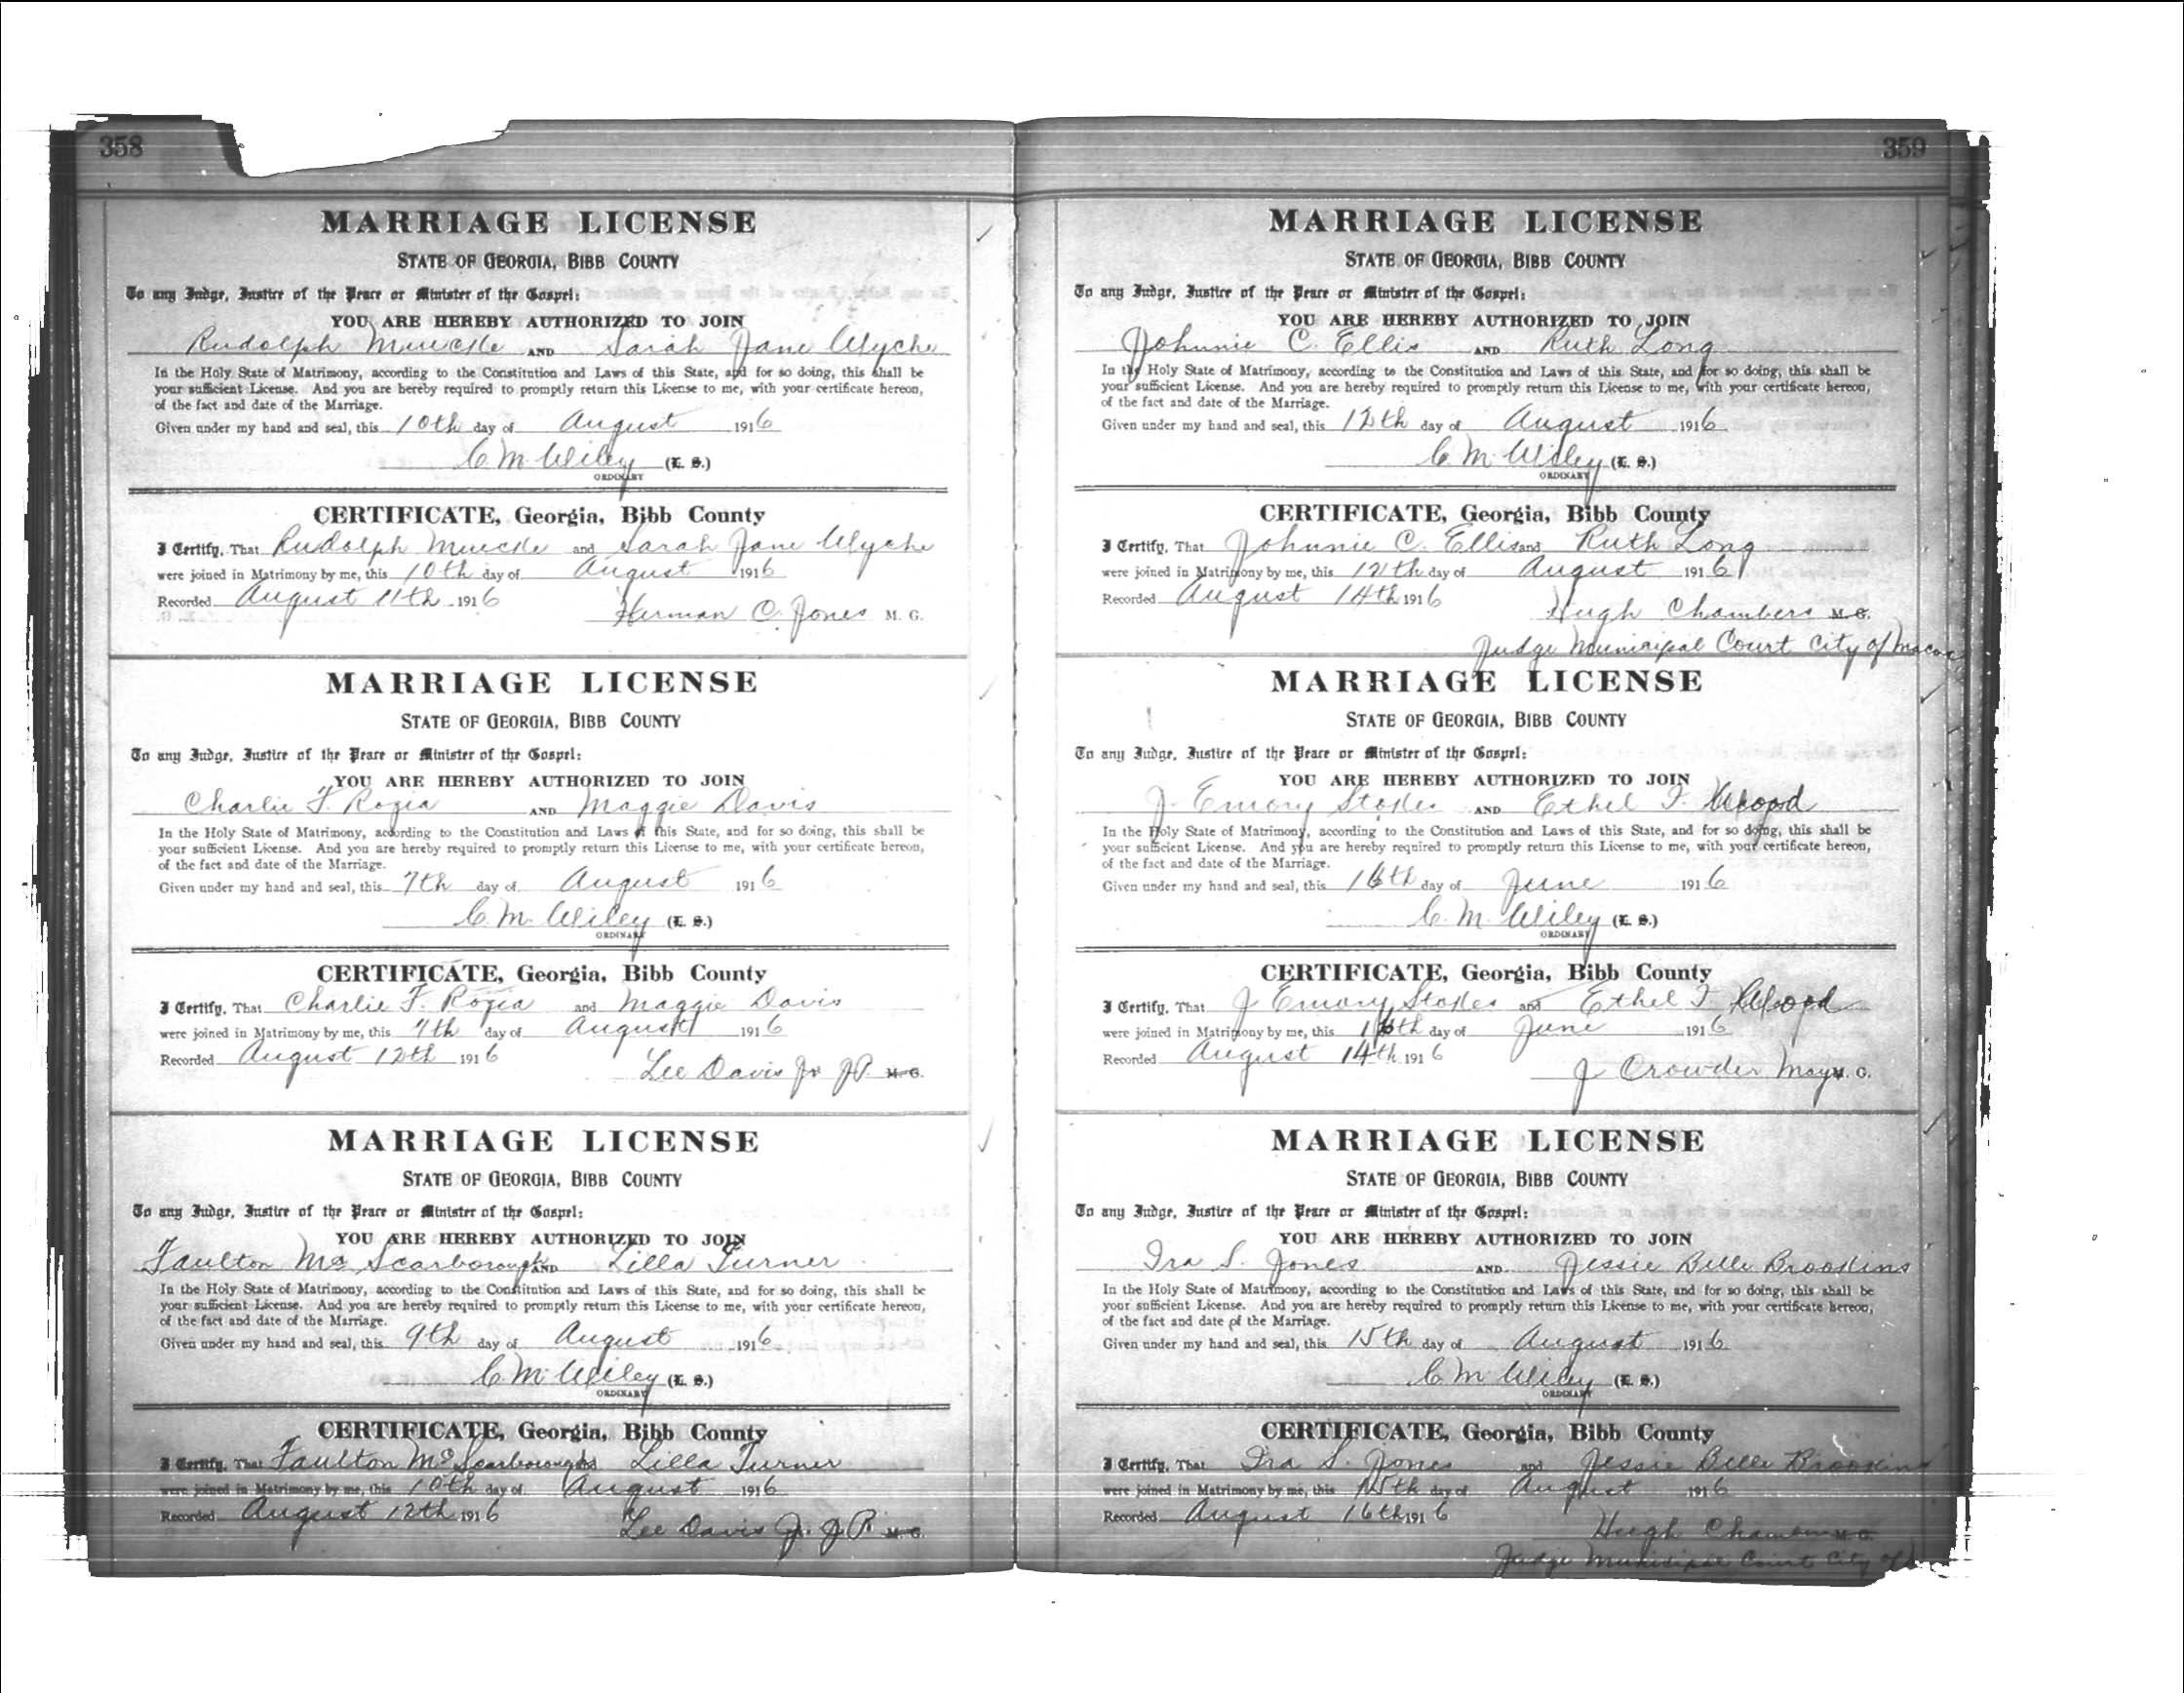 358
MARRIAGE LICENSE
STATE OF GEORGIA, BIBB COUNTY
To any Judge, Justice of the Peace or Minister of the Gospel:
YOU ARE HEREBY AUTHORIZED TO JOIN
Rudolph Muecke AND Sarah Jane Wyche
In the Holy State of Matrimony, according to the Constitution and Laws of this State, and for so doing, this shall be
your sufficient License. And you are hereby required to promptly return this License to me, with your certificate hereon,
of the fact and date of the Marriage.
Given under my hand and seal, this 10th day of August 1916
C. M. Wiley (L. S.)
ORDINARY
CERTIFICATE, Georgia, Bibb County
I Certify, That Rudolph Muecke and Sarah Jane Wyche
were joined in Matrimony by me, this 10th day of August 1916
Recorded August 11th 1916
Herman C. Jones M. G.
MARRIAGE LICENSE
STATE OF GEORGIA, BIBB COUNTY
To any Judge, Justice of the Peace or Minister of the Gospel:
YOU ARE HEREBY AUTHORIZED TO JOIN
Charlie F. Rozia AND Maggie Davis
In the Holy State of Matrimony, according to the Constitution and Laws of this State, and for so doing, this shall be
your sufficient License. And you are hereby required to promptly return this License to me, with your certificate hereon,
of the fact and date of the Marriage.
Given under my hand and seal, this 7th day of August 1916
C. M. Wiley (L. S.)
ORDINARY
CERTIFICATE, Georgia, Bibb County
I Certify, That Charlie F. Rozia and Maggie Davis
were joined in Matrimony by me, this 7th day of August 1916
Recorded August 12th 1916
Lee Davis Jr J.P. M. G.
MARRIAGE LICENSE
STATE OF GEORGIA, BIBB COUNTY
To any Judge, Justice of the Peace or Minister of the Gospel:
YOU ARE HEREBY AUTHORIZED TO JOIN
Faulton Mc Scarborough AND Lilla Turner
In the Holy State of Matrimony, according to the Constitution and Laws of this State, and for so doing, this shall be
your sufficient License. And you are hereby required to promptly return this License to me, with your certificate hereon,
of the fact and date of the Marriage.
Given under my hand and seal, this 9th day of August 1916
C. M. Wiley (L. S.)
ORDINARY
CERTIFICATE, Georgia, Bibb County
I Certify, That Faulton Mc Scarborough and Lilla Turner
were joined in Matrimony by me, this 10th day of August 1916
Recorded August 12th 1916
Lee Davis Jr. J.P. M. G.
359
MARRIAGE LICENSE
STATE OF GEORGIA, BIBB COUNTY
To any Judge, Justice of the Peace or Minister of the Gospel:
YOU ARE HEREBY AUTHORIZED TO JOIN
Johnnie C. Ellis AND Ruth Long
In the Holy State of Matrimony, according to the Constitution and Laws of this State, and for so doing, this shall be
your sufficient License. And you are hereby required to promptly return this License to me, with your certificate hereon,
of the fact and date of the Marriage.
Given under my hand and seal, this 12th day of August 1916
C. M. Wiley (L. S.)
ORDINARY
CERTIFICATE, Georgia, Bibb County
I Certify, That Johnnie C. Ellis and Ruth Long
were joined in Matrimony by me, this 12th day of August 1916
Recorded August 14th 1916
Hugh Chambers M. G.
Judge Municipal Court City of Macon
MARRIAGE LICENSE
STATE OF GEORGIA, BIBB COUNTY
To any Judge, Justice of the Peace or Minister of the Gospel:
YOU ARE HEREBY AUTHORIZED TO JOIN
J. Emory Stokes AND Ethel F.
In the Holy State of Matrimony, according to the Constitution and Laws of this State, and for so doing, this shall be
your sufficient License. And you are hereby required to promptly return this License to me, with your certificate hereon,
of the fact and date of the Marriage.
Given under my hand and seal, this 16th day of June 1916
C. M. Wiley (L. S.)
ORDINARY
CERTIFICATE, Georgia, Bibb County
I Certify, That J Emory Stokes and Ethel F.
were joined in Matrimony by me, this day of June 1916
Recorded August 14th 1916
J Crowder May M. G.
MARRIAGE LICENSE
STATE OF GEORGIA, BIBB COUNTY
To any Judge, Justice of the Peace or Minister of the Gospel:
YOU ARE HEREBY AUTHORIZED TO JOIN
Ira S. Jones AND Jessie Belle Brookins
In the Holy State of Matrimony, according to the Constitution and Laws of this State, and for so doing, this shall be
your sufficient License. And you are hereby required to promptly return this License to me, with your certificate hereon,
of the fact and date of the Marriage.
Given under my hand and seal, this 15th day of August 1916
C. M. Wiley (L. S.)
ORDINARY
CERTIFICATE, Georgia, Bibb County
I Certify, That Ira S. Jones and Jessie Belle Brookins
were joined in Matrimony by me, this 15th day of August 1916
Recorded August 16th 1916
Hugh Chambers M. G.
Judge Municipal Court City of